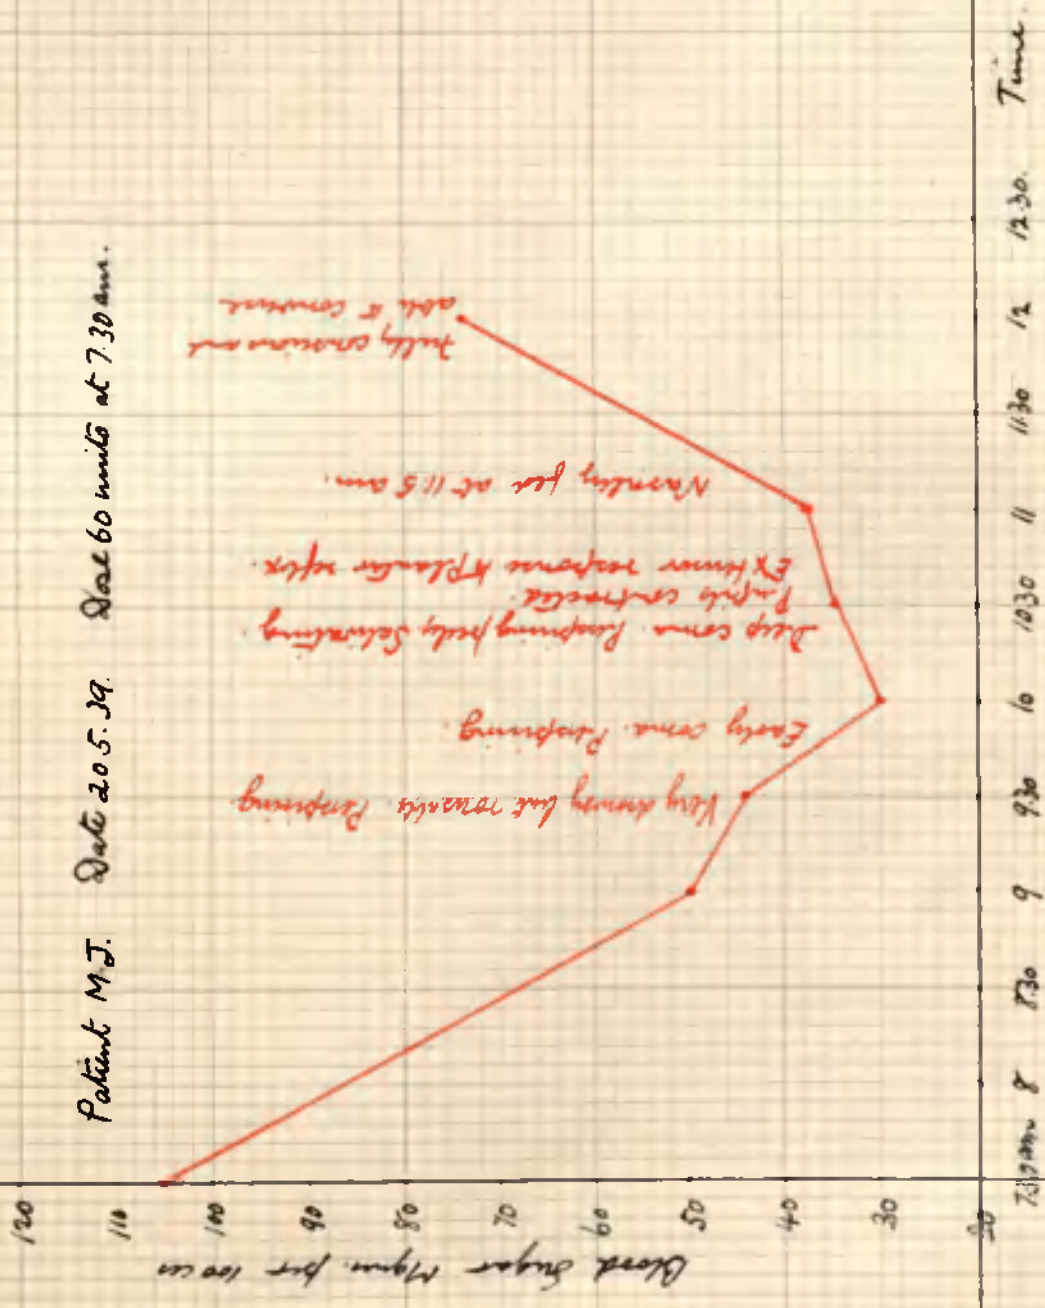 Patient M.J. Date 20.5.39. Dose 60 units at 7.30 am.
Blood Sugar Mgms. per 100 ccs
120
110
100
90
80
70
60
50
40
30
20
7.30 am 8 8.30 9 9.30 10 10.30 11 11.30 12 12.30. Time.
Very drowsy but rousable. Perspiring
Early coma. Perspiring.
Deep coma. Perspiring freely, Salivating.
Pupils contracted.
Extensor response to Plantar reflex.
Nasally fed at 11.5 am.
Fully conscious and
able to converse